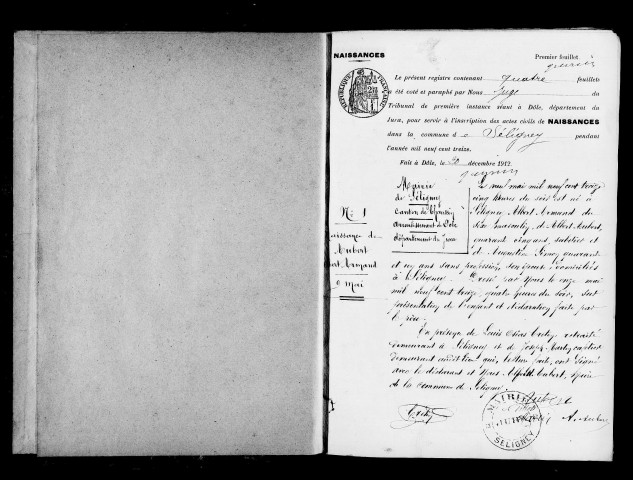 NAISSANCES
Premier feuillet.
RÉPUBLIQUE FRANÇAISE
Le présent registre contenant quatre feuillets
a été coté et paraphé par Nous Juge du
Tribunal de première instance séant à Dôle, département du
Jura, pour servir à l'inscription des actes civils de NAISSANCES
dans la commune de Séligney pendant
l'année mil neuf cent treize.
Fait à Dôle, le 20 décembre 1912.
Mairie
de Séligney
Canton de Chaussin
Arrondissement de Dole
Département du Jura
N° 1
Naissance de
Aubert
Armand
9 Mai
Le neuf mai mil neuf cent treize
cinq heures du soir est né à
Séligney Albert Armand du
sexe masculin, d'Albert Aubert,
quarante cinq ans, et
de quarante
et un ans sans profession, domiciliés
à Séligney. Dressé par Nous le onze mai
mil neuf cent treize, quatre heures du soir, sur
présentation de l'enfant et déclaration faite par
le père.
En présence de Louis retraité
demeurant à Séligney et de Joseph
demeurant qui, lecture faite, ont signé
avec le déclarant et Nous Aubert, Maire
de la commune de Séligney.
Aubert
MAIRIE
SÉLIGNEY
A. Aubert